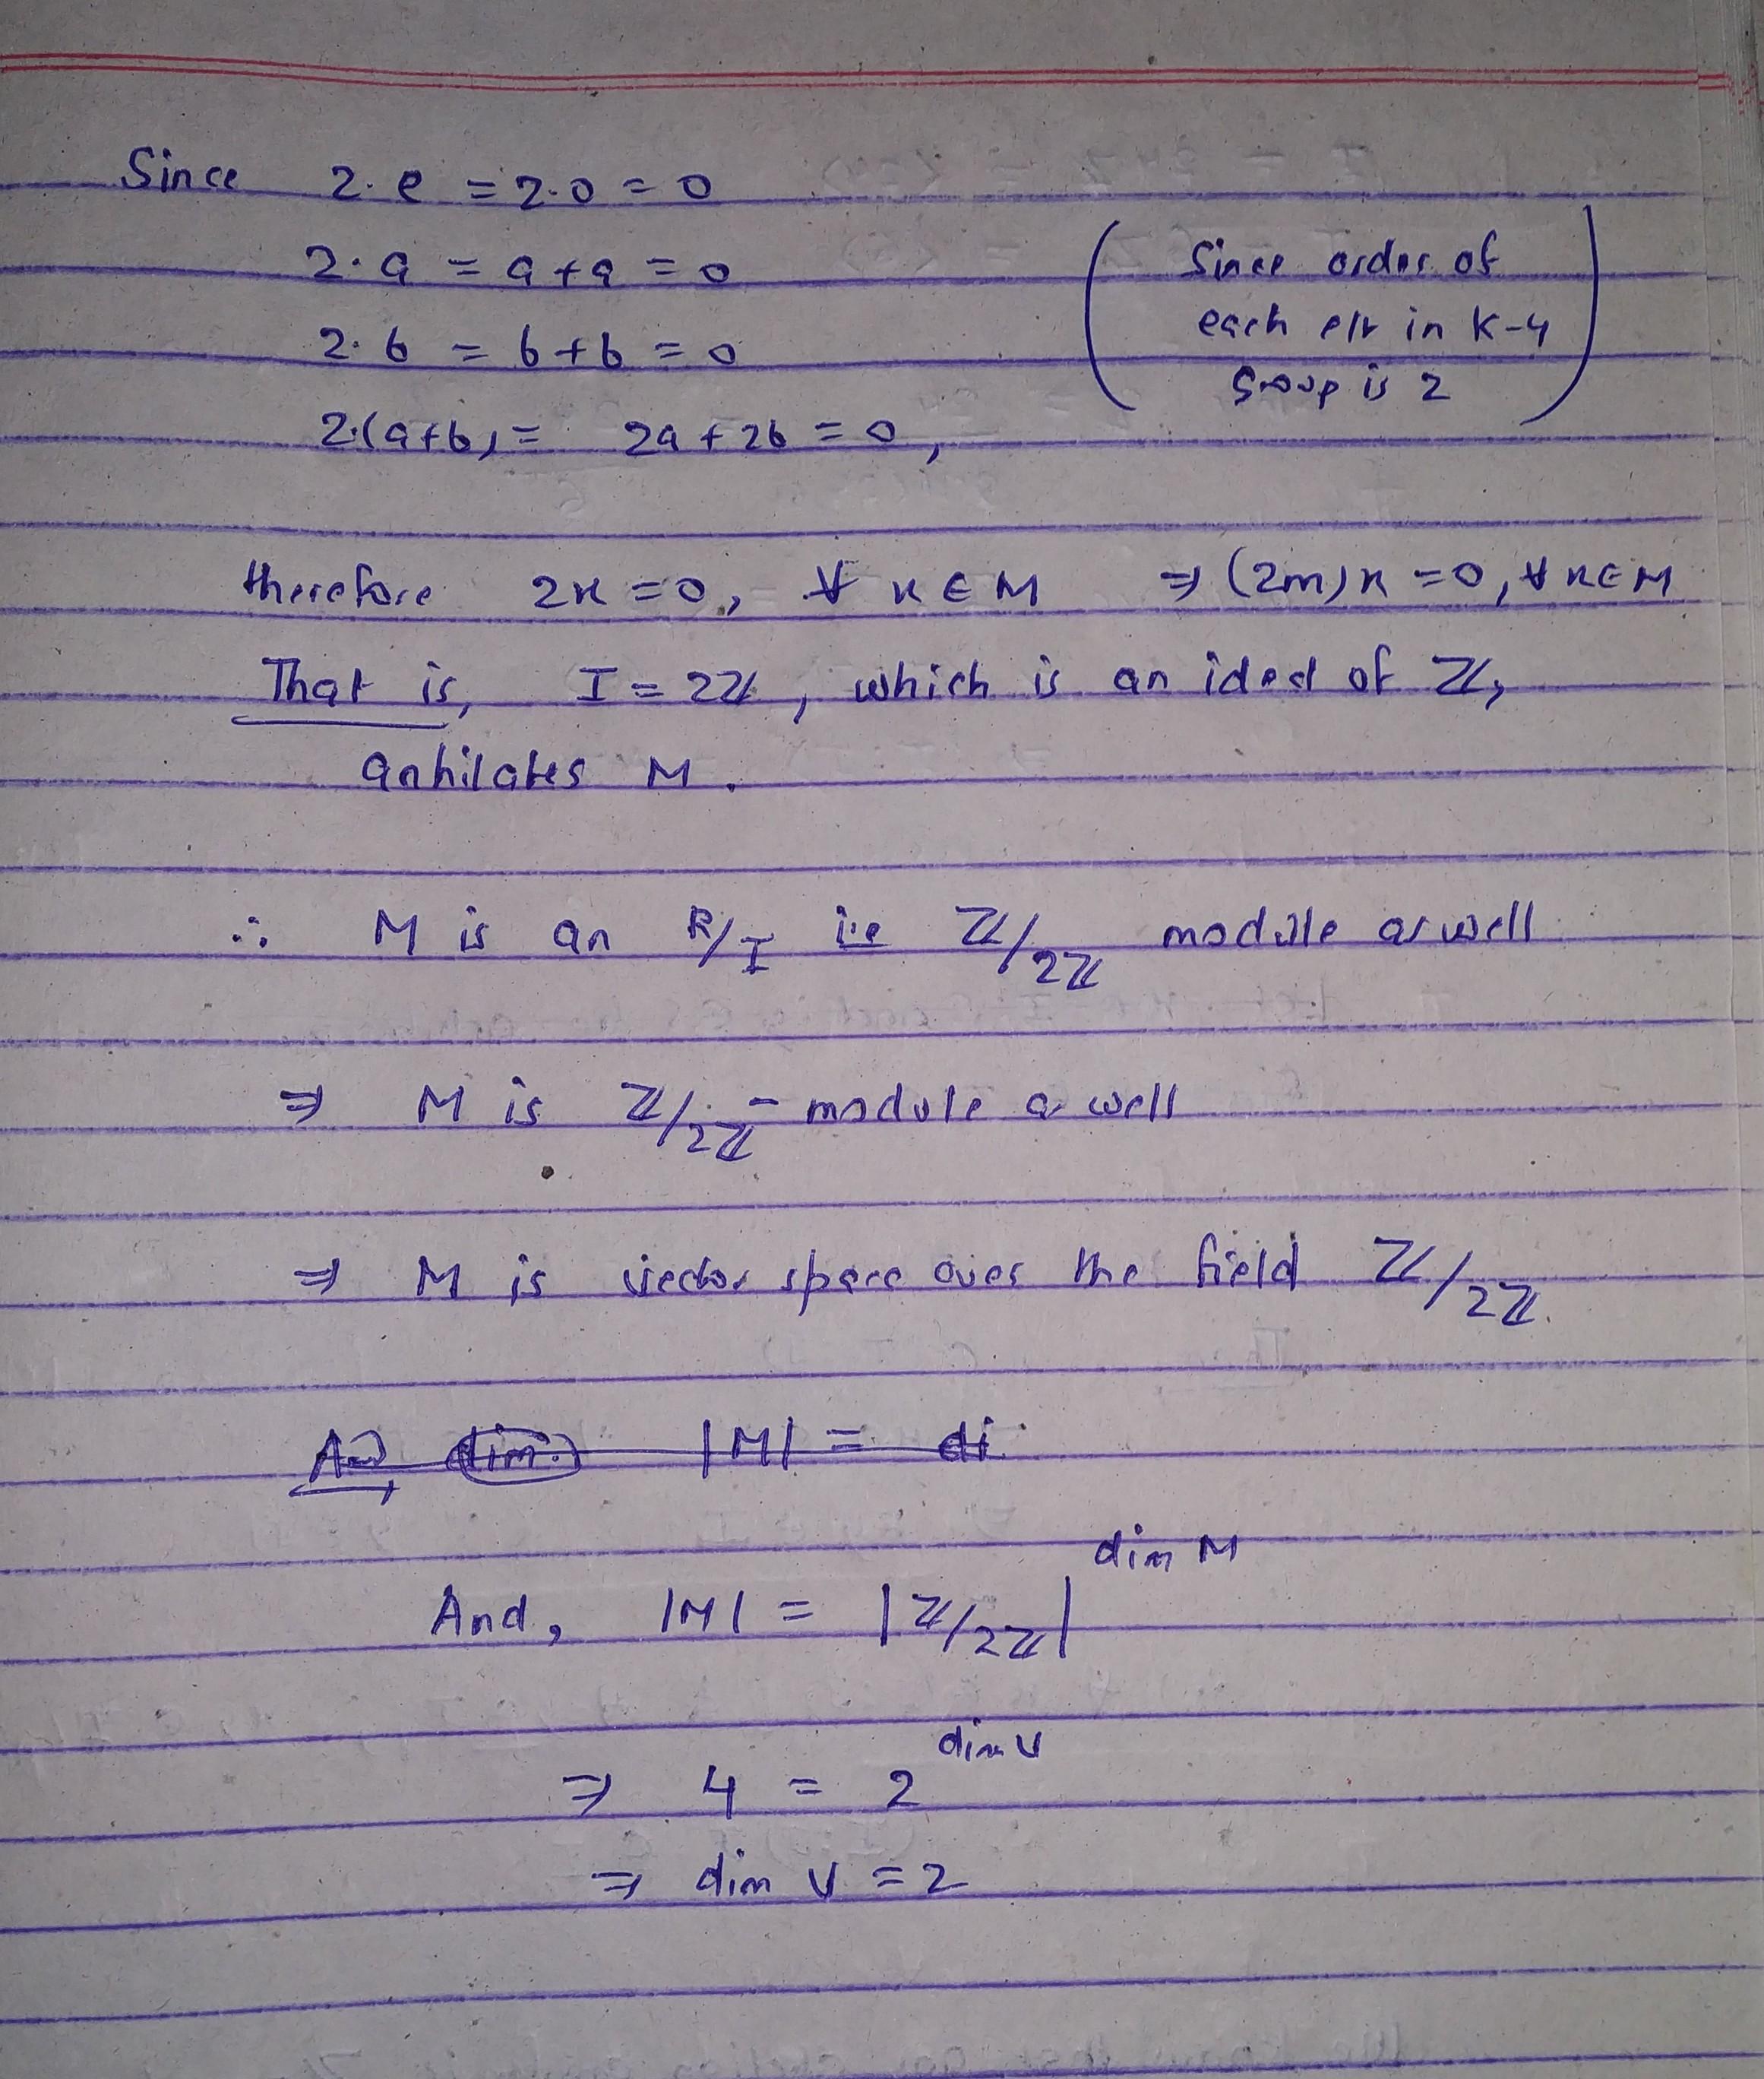 Since 2·e = 2·0 = 0
2·a = a+a = 0
2·b = b+b = 0
2·(a+b) = 2a + 2b = 0,
( Since order of
each elt in K-4
Group is 2 )
therefore 2x = 0, ∀ x ∈ M ⇒ (2m)x = 0, ∀ x ∈ M
That is, I = 2ℤ, which is an ideal of ℤ,
anhilates M.
∴ M is an R/I i.e ℤ/2ℤ module as well
⇒ M is ℤ/2ℤ - module as well
⇒ M is vector space over the field ℤ/2ℤ.
And dim |M| = di
And, |M| = |ℤ/2ℤ|^dim M
⇒ 4 = 2^dim V
⇒ dim V = 2